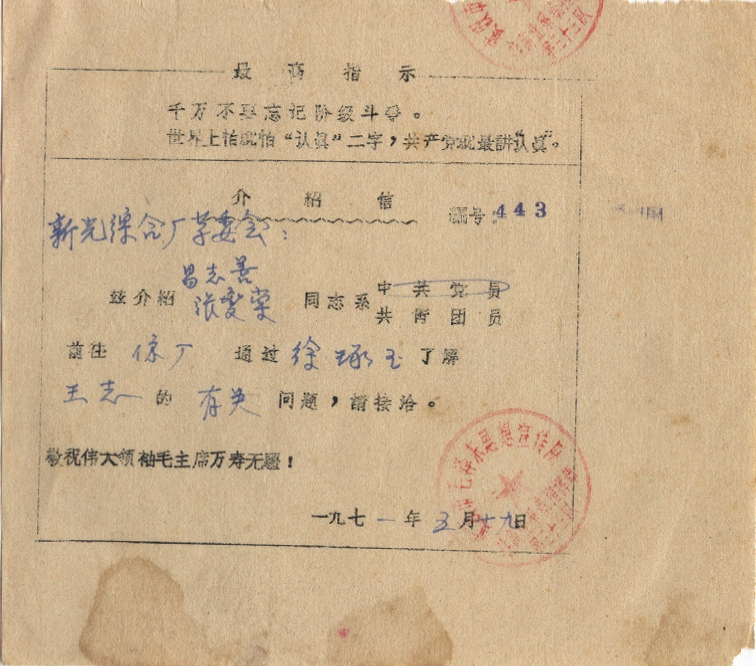 最高指示
千万不要忘记阶级斗争。
世界上怕就怕“认真”二字，共产党就最讲“认真”。
介绍信
编号：443
新光综合厂革委会：
兹介绍 吕志善 张变荣 同志系 中共党员 共青团员
前往 你厂 通过 徐琢玉 了解
王志一 的 有关 问题，請接洽。
敬祝伟大领袖毛主席万寿无疆！
一九七一年 三月十九日
毛泽东思想宣传队